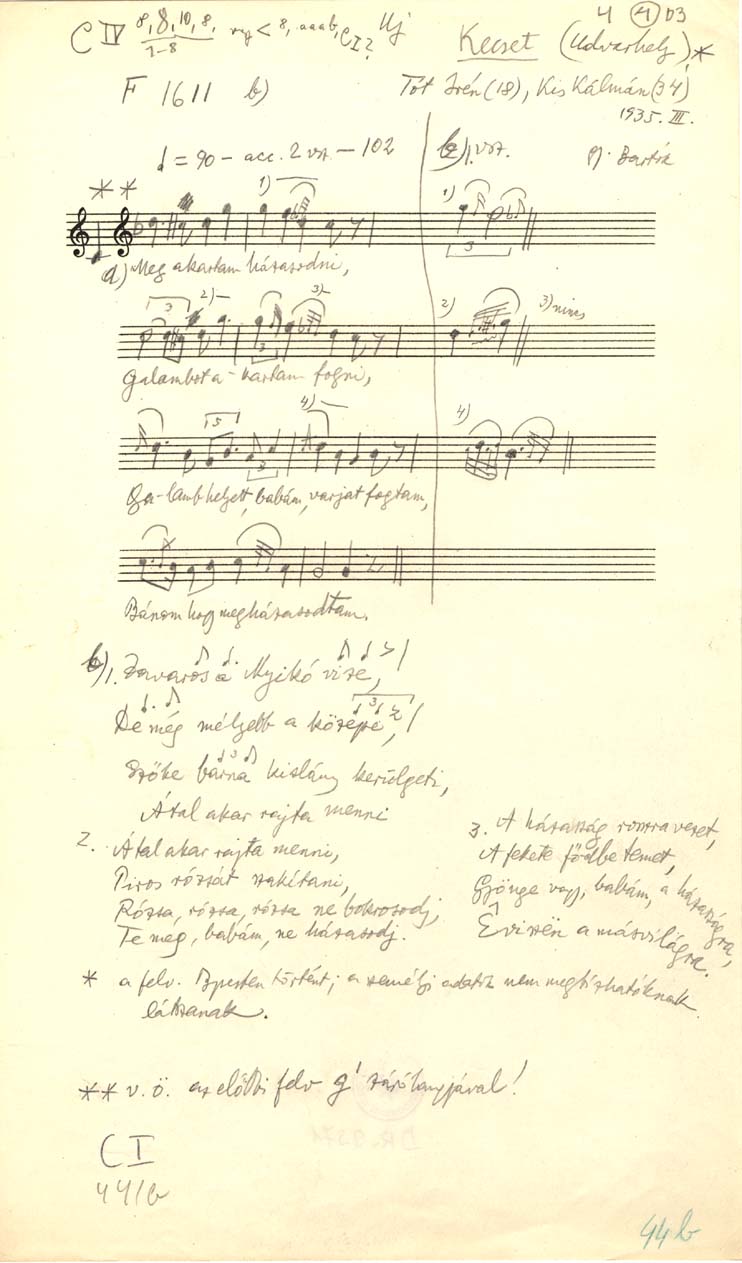 C IV 8, 8, 10, 8, < 8, aaab, CI? Uj
7-8
4 4 03
Kecset (Udvarhely) *
F 1611 b)
Tót Irén (18), Kis Kálmán (34)
1935. III.
= 90 – acc. 2 vsz. – 102
b) 1. vsz.
Bartók
* *
1)
1)
3
a) Meg akartam házasodni,
3 2) 3)
3
2)
3) nincs
Galambot a- kartam fogni,
5 4)
3
4)
Ga-lamb helyett, babám, varjat fogtam,
Bánom hogy megházasodtam.
b) 1. Zavaros a Nyikó vize,
De még mélyebb a közepe,
3
3
Szőke barna kislány kerülgeti,
Által akar rajta menni
2. Által akar rajta menni,
Piros rózsát szakítani,
Rózsa, rózsa, rózsa ne bokrosodj,
Te meg, babám, ne házasodj.
3. A házasság rosszra vezet,
A fekete födbe temet,
Gyönge vagy, babám, a házasságra,
Êviszën a másvilágra.
* a felv. Bpesten történt; a személyi adatok nem megbízhatóknak
látszanak.
** v. ö. az előbbi felv g' záróhangjával!
C I
44/b
44 b